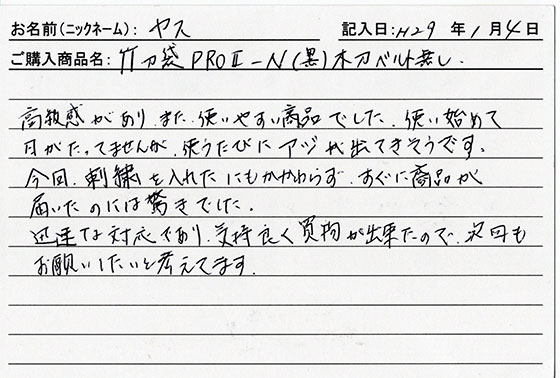 お名前(ニックネーム): ヤス 記入日: H29 年 1 月 4 日
ご購入商品名: 竹刀袋 PROⅡ-N (黒) 木刀ベルト無し.
高級感があり、また、使いやすい商品でした。使い始めて
日がたってませんが、使うたびにアジが出てきそうです。
今回、刺繍を入れたにもかかわらず、すぐに商品が
届いたのには驚きでした。
迅速な対応であり、気持良く買物が出来たので、次回も
お願いしたいと考えてます。